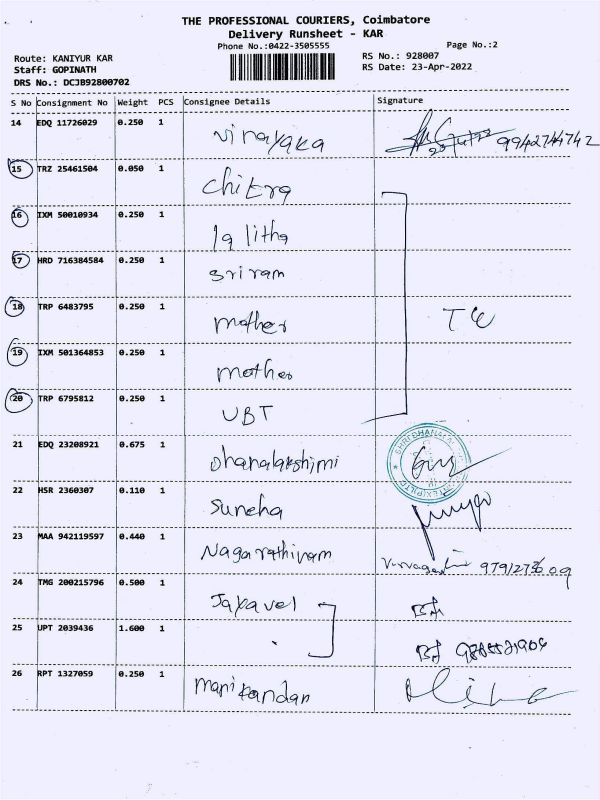 THE PROFESSIONAL COURIERS, Coimbatore
Delivery Runsheet - KAR
Phone No.:0422-3505555
Page No.:2
Route: KANIYUR KAR
RS No.: 928007
Staff: GOPINATH
RS Date: 23-Apr-2022
DRS No.: DCJB92800702
S No Consignment No Weight PCS Consignee Details Signature
14 EDQ 11726029 0.250 1 vinayaka 9942744742
15 TRZ 25461504 0.050 1 chitra
16 IXM 50010934 0.250 1 lalitha
17 HRD 716384584 0.250 1 sriram
18 TRP 6483795 0.250 1 mother
19 IXM 501364853 0.250 1 mother
20 TRP 6795812 0.250 1 UBT
21 EDQ 23208921 0.675 1 Dhanalakshimi
SHRI DHANALA
22 HSR 2360307 0.110 1 Suneha
23 MAA 942119597 0.440 1 Nagarathinam
24 TMG 200215796 0.500 1 Jayavel
25 UPT 2039436 1.600 1
26 RPT 1327059 0.250 1 manikandan